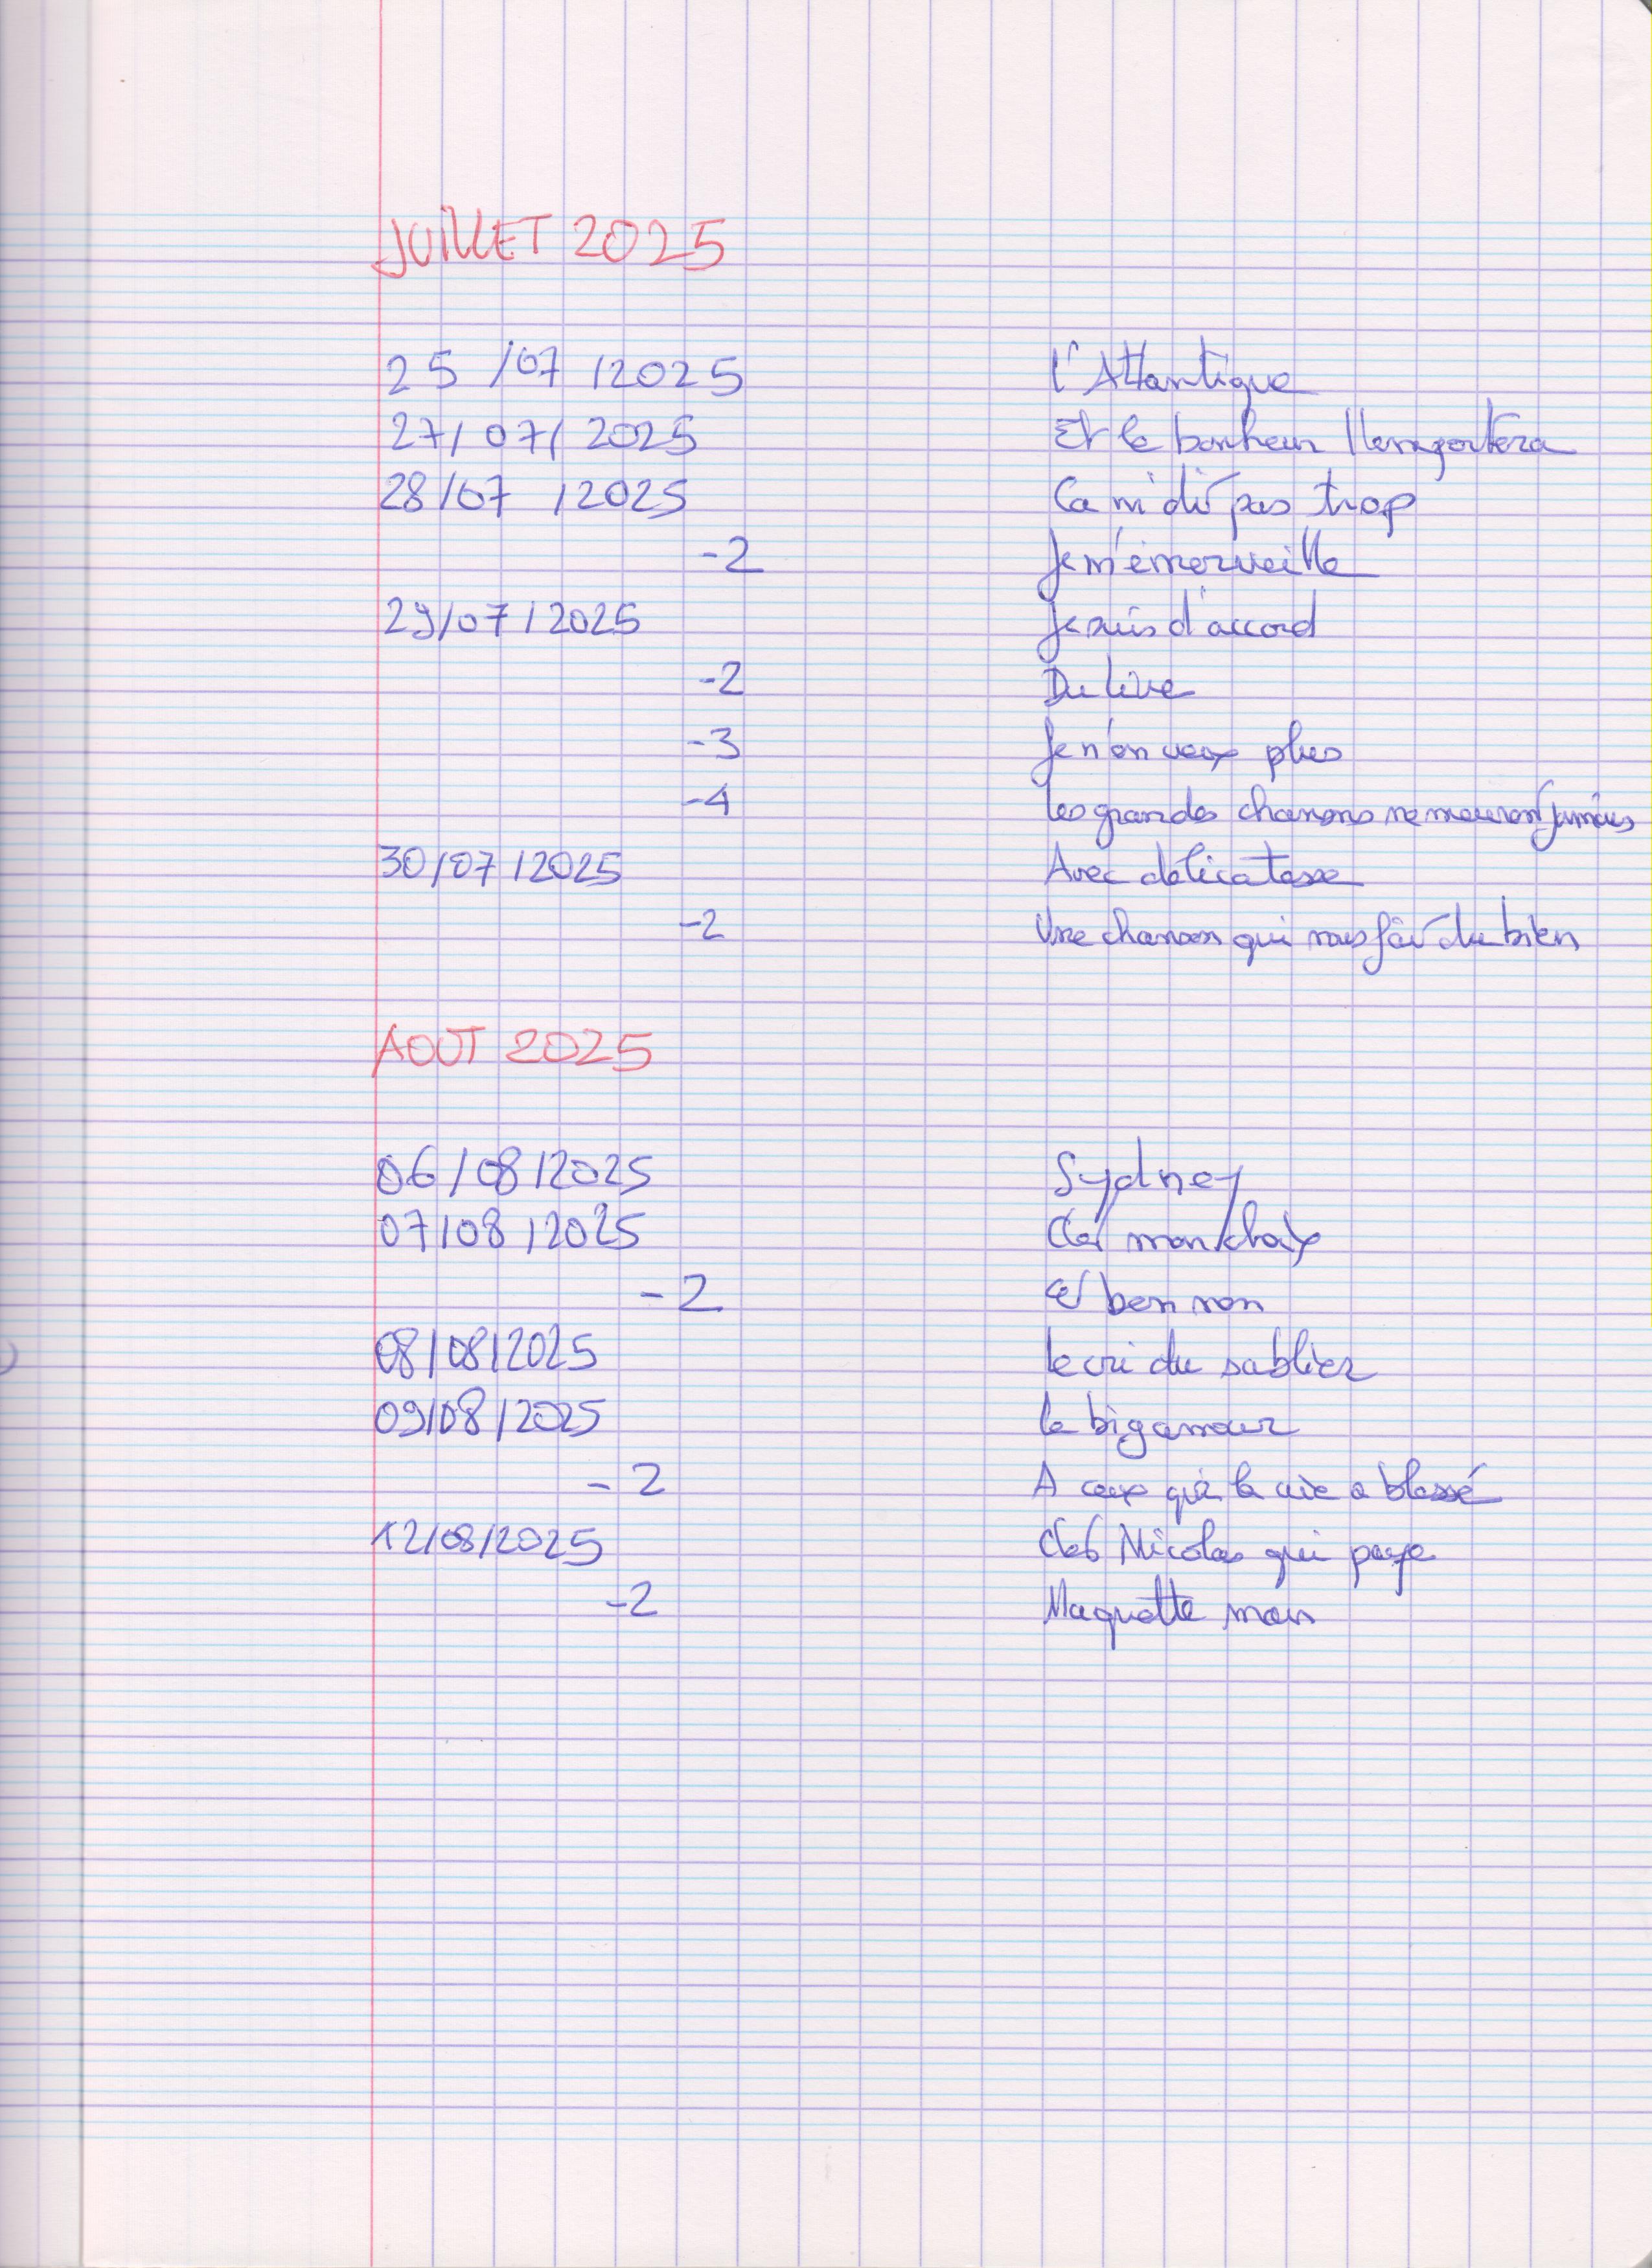 JUILLET 2025
25/07/2025 L'Atlantique
27/07/2025 Et le bonheur l'emportera
28/07/2025 Ca m'dit pas trop
-2 Je m'émerveille
29/07/2025 Je suis d'accord
-2 Du live
-3 Je n'en veux plus
-4 Les grandes chansons ne meuront jamais
30/07/2025 Avec délicatesse
-2 Une chanson qui nous fait du bien
AOUT 2025
06/08/2025 Sydney
07/08/2025 C'est mon choix
-2 Et ben non
08/08/2025 Le cri du sablier
09/08/2025 Le big amour
-2 A ceux que la vie a blessé
12/08/2025 C'est Nicolas qui paye
-2 Maquette